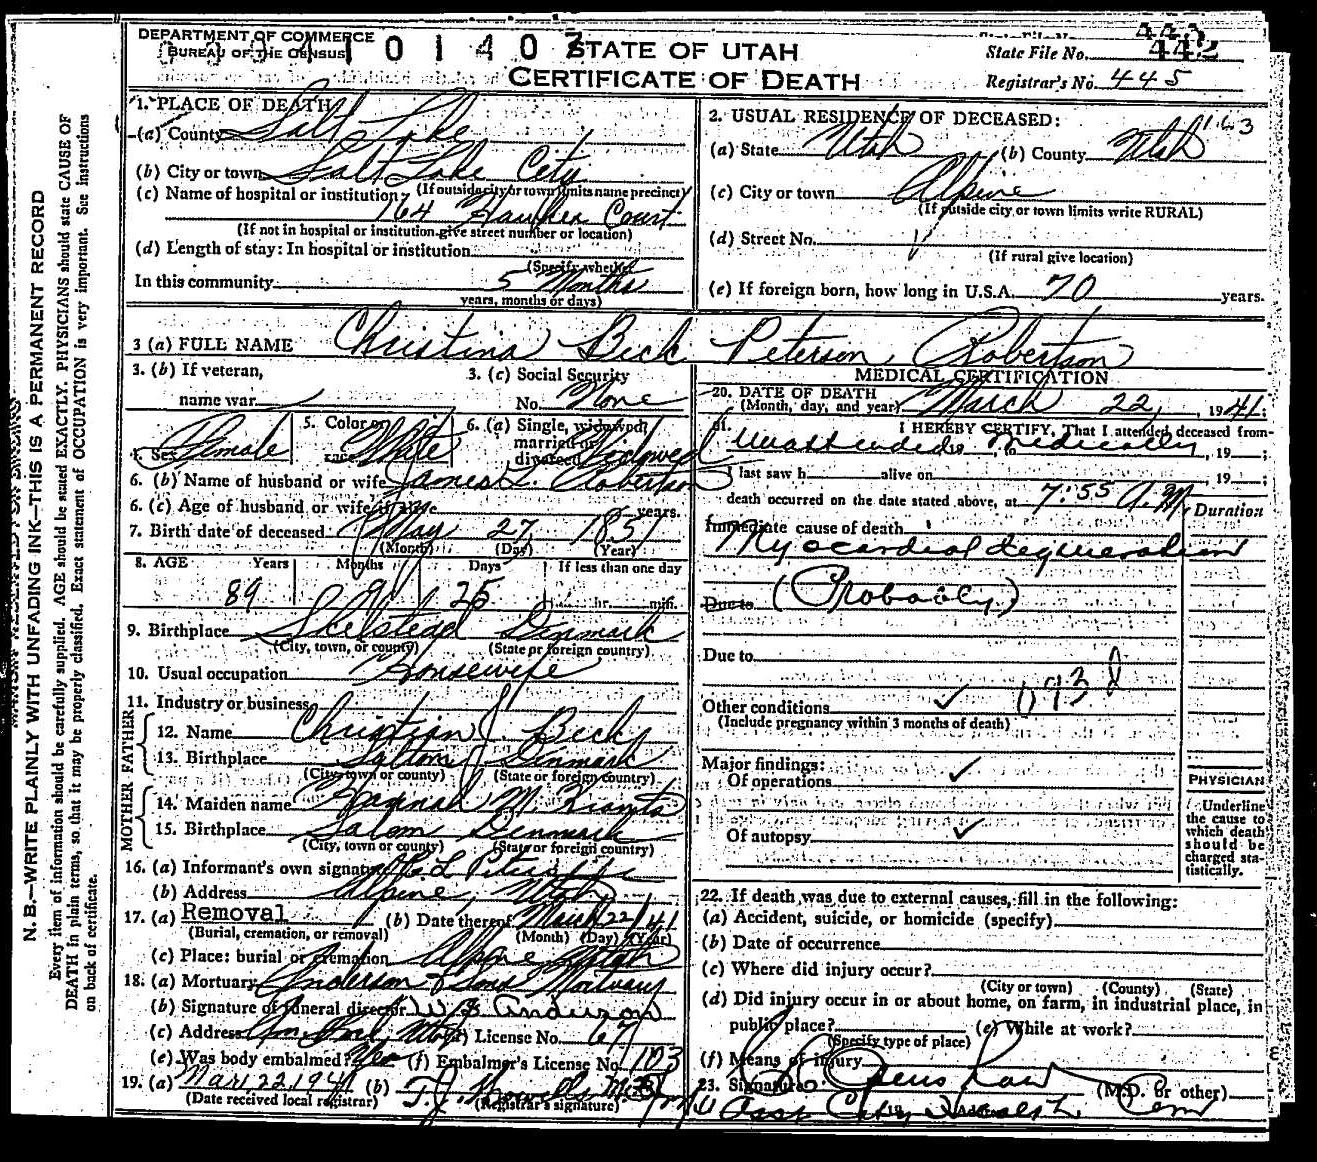 DEPARTMENT OF COMMERCE
BUREAU OF THE CENSUS
STATE OF UTAH
CERTIFICATE OF DEATH
State File No. 442
Registrar's No. 445
1. PLACE OF DEATH
(a) County Salt Lake
(b) City or town Salt Lake City
(If outside city or town limits name precinct)
(c) Name of hospital or institution:
164 Court
(If not in hospital or institution give street number or location)
(d) Length of stay: In hospital or institution
(Specify whether
In this community 5 Months
years, months or days)
2. USUAL RESIDENCE OF DECEASED:
(a) State Utah (b) County Utah
(c) City or town Alpine
(If outside city or town limits write RURAL)
(d) Street No.
(If rural give location)
(e) If foreign born, how long in U.S.A. 70 years.
3 (a) FULL NAME Christina Beck Peterson Robertson
3. (b) If veteran,
name war
3. (c) Social Security
No. None
4. Sex Female
5. Color or
race White
6. (a) Single, widowed,
married or
divorced Widowed
6. (b) Name of husband or wife James L. Robertson
6. (c) Age of husband or wife if alive years.
7. Birth date of deceased May 27 1851
(Month) (Day) (Year)
8. AGE Years Months Days If less than one day
89 9 25 hr. min.
9. Birthplace Denmark
(City, town, or county) (State or foreign country)
10. Usual occupation Housewife
11. Industry or business
FATHER
12. Name Christian J. Beck
13. Birthplace Denmark
(City, town or county) (State or foreign country)
MOTHER
14. Maiden name Hannah M.
15. Birthplace Denmark
(City, town or county) (State or foreign country)
16. (a) Informant's own signature
(b) Address Alpine, Utah
17. (a) Removal (b) Date thereof March 22 41
(Burial, cremation, or removal) (Month) (Day) (Year)
(c) Place: burial or cremation Alpine Utah
18. (a) Mortuary Anderson & Sons Mortuary
(b) Signature of funeral director W. E. Anderson
(c) Address Am Fork, Utah (d) License No. 67
(e) Was body embalmed? Yes (f) Embalmer's License No. 103
19. (a) Mar. 22, 1941 (b) T. J. Howells M.D.
(Date received local registrar) (Registrar's signature)
MEDICAL CERTIFICATION
20. DATE OF DEATH
(Month, day, and year) March 22, 1941;
21. I HEREBY CERTIFY, That I attended deceased from
Unattended Medically, 19 ;
I last saw h alive on , 19 ;
death occurred on the date stated above, at 7:55 A.M.
Duration
Immediate cause of death
Myocardial degeneration
Due to (Probably)
Due to
093 d
Other conditions
(Include pregnancy within 3 months of death)
Major findings:
Of operations
Of autopsy
PHYSICIAN
Underline
the cause to
which death
should be
charged sta-
tistically.
22. If death was due to external causes, fill in the following:
(a) Accident, suicide, or homicide (specify)
(b) Date of occurrence
(c) Where did injury occur?
(City or town) (County) (State)
(d) Did injury occur in or about home, on farm, in industrial place, in
public place? (e) While at work?
(Specify type of place)
(f) Means of injury
23. Signature (M.D. or other)
Asst City Health Com
N. B.—WRITE PLAINLY WITH UNFADING INK—THIS IS A PERMANENT RECORD
Every item of information should be carefully supplied. AGE should be stated EXACTLY. PHYSICIANS should state CAUSE OF
DEATH in plain terms, so that it may be properly classified. Exact statement of OCCUPATION is very important. See instructions
on back of certificate.